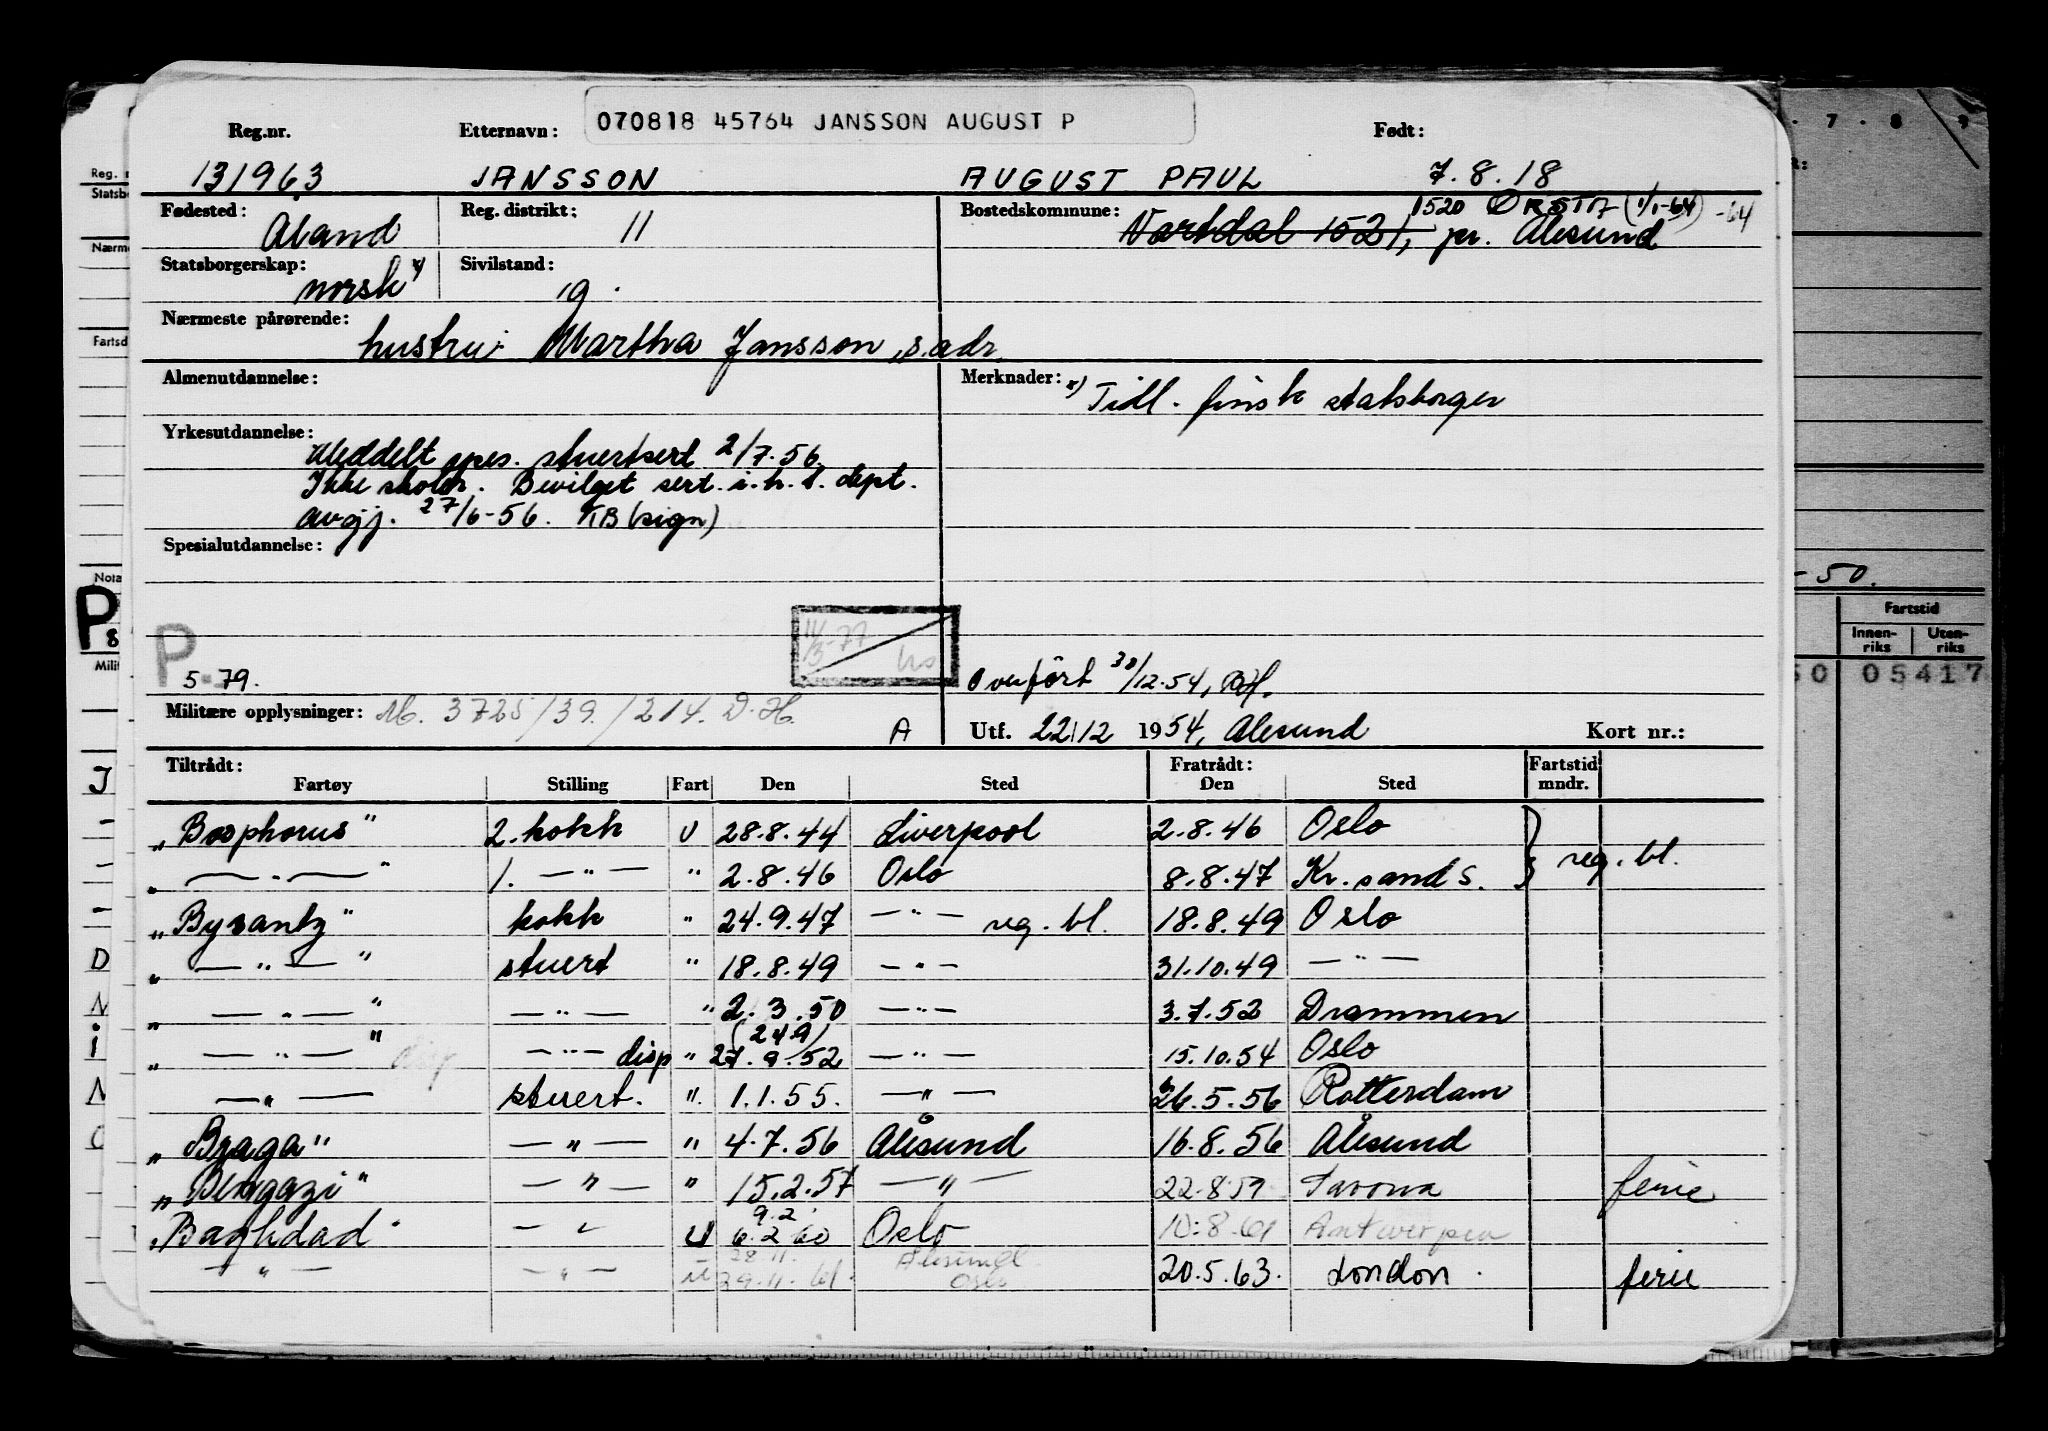 070818 45764 JANSSON AUGUST P
Reg.nr. Etternavn: Født:
131963 JANSSON AUGUST PAUL 7.8.18
Fødested: Åland Reg. distrikt: 11 Bostedskommune: Vartdal 1521, pr. Ålesund
1520 ØRSTA (1/1-64) -64
Statsborgerskap: norsk x) Sivilstand: g.
Nærmeste pårørende: hustru: Martha Jansson, s.adr.
Almenutdannelse: Merknader: x) Tidl. finsk statsborger
Yrkesutdannelse: Meddelt spes. stuertsert 2/7.56.
Ikke skoler. Bevilget sert. i.h.t. dept.
avgj. 27/6-56. KB (sign)
Spesialutdannelse:
P
11/3-77
5-79. Overført 30/12-54,
Militære opplysninger: M. 3725/39./214. D.H. A Utf. 22/12 1954, Ålesund Kort nr.:
Tiltrådt: Fratrådt: Fartstid
Fartøy Stilling Fart Den Sted Den Sted mndr.
„Bosphorus" 2. kokk U 28.8.44 Liverpool 2.8.46 Oslo
„ — " — " 1. — " — " 2.8.46 Oslo 8.8.47 Kr.sand S. } reg. bl.
„Byzantz" kokk " 24.9.47 — " — reg. bl. 18.8.49 Oslo
„ — " — " stuert " 18.8.49 — " — 31.10.49 — " —
„ — " — " — " — " 2.3.50 — " — 3.7.52 Drammen
(24.9)
„ — " — " — " — disp " 27.9.52 — " — 15.10.54 Oslo
— " — stuert. " 1.1.55. — " — 26.5.56 Rotterdam
„Braga" — " — " 4.7.56 Ålesund 16.8.56 Ålesund
„Bengazi" — " — " 15.2.57 — " — 22.8.59 Savona ferie
9.2.
„Baghdad" — " — U 6.2.60 Oslo 10.8.61 Antwerpen
28.11. Ålesund
— " — — " — U 29.11.61. Oslo 20.5.63. London. ferie
Reg. n
Statsbo
Nærme
Fartsd
Nota
P
8
Milit
J
D
N
i
N
- 7 - 8
-50.
Fartstid
Innen-riks Uten-riks
50 05417